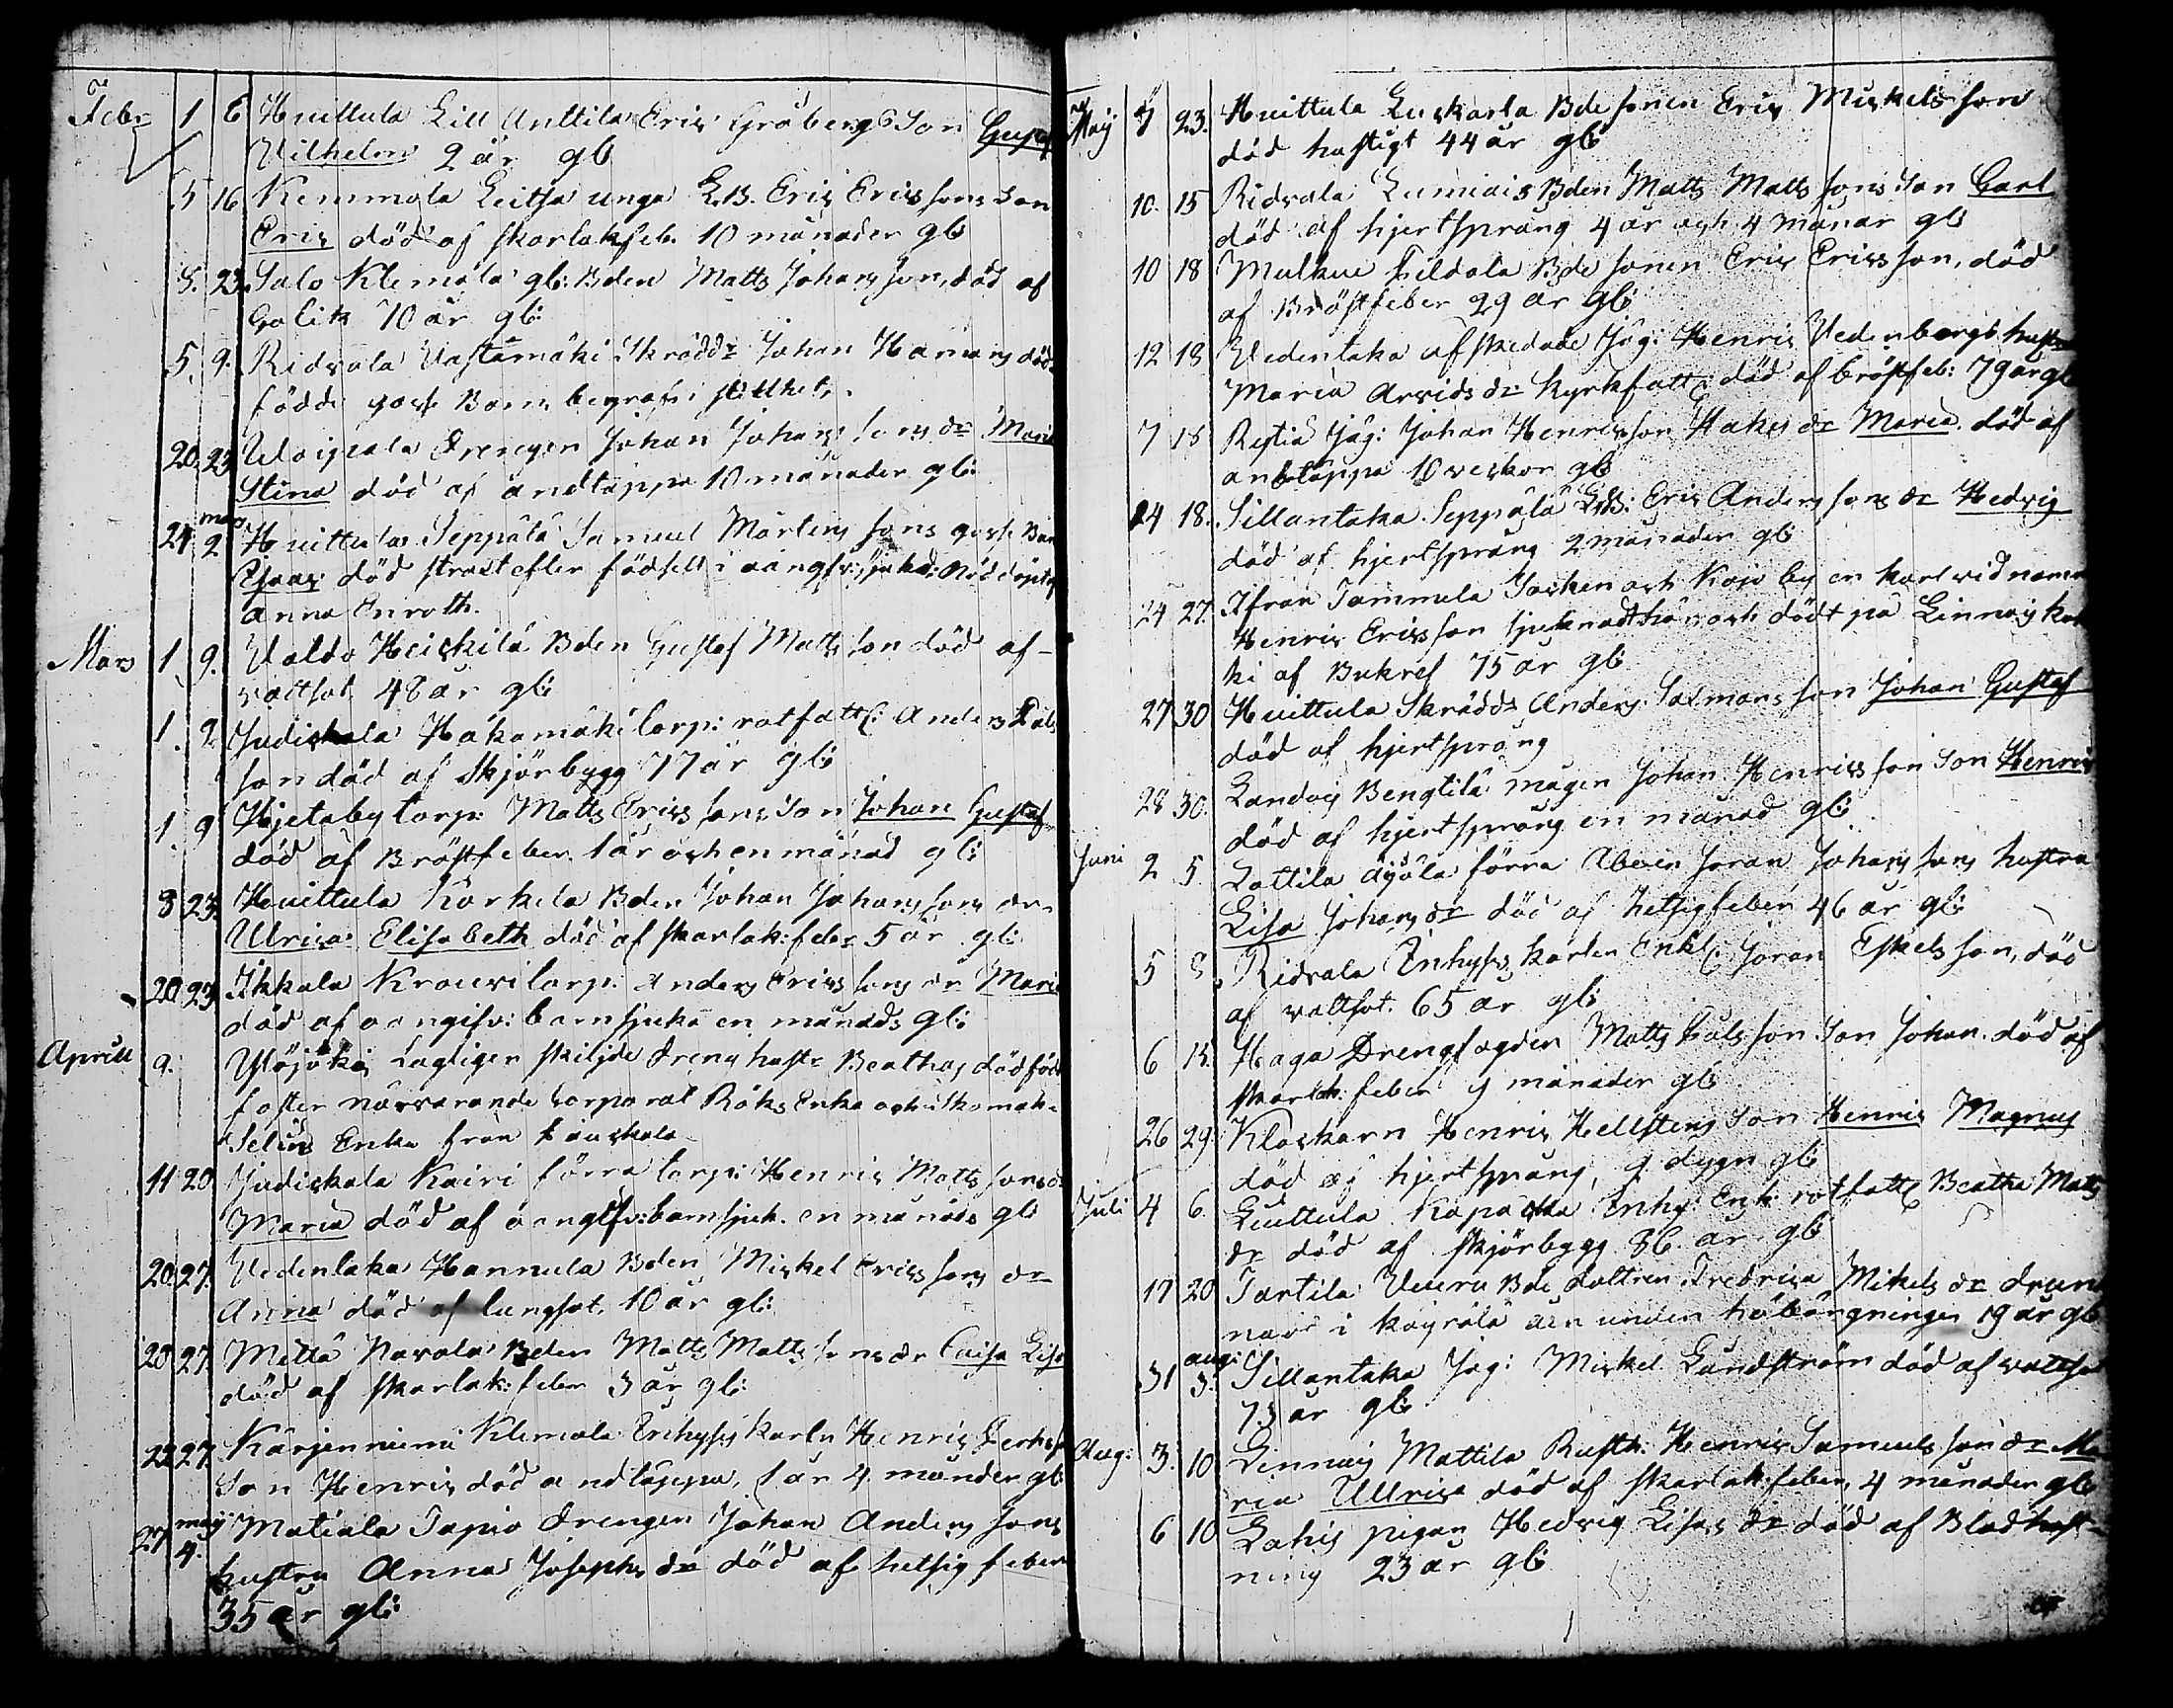 Febr 1 6 Huittula Lill Anttila Eric Gröbergs Son Gustaf
Vilhelm 2 år gl:
5 16 Kemmola Leitsa unga L.B. Eric Ericssons Son
Eric död af skarlakfeb. 10 månader gl:
8. 23. Salo Klemola gl: Bden Matts Johansson, död af
Colik 70 år gl:
5. 9. Ridvala Vastamäki Skrädd:r Johan Hamans död
födde gosse Barn begrafvi stillhet.
20. 23 Uoipala Drengen Johan Johanssons dr Maria
Stina död af andtäppa 10 månader gl:
24 mars 2 Huittula Seppälä Samuel Mårtenssons gosse Barn
Esaias död strax efter födseln i oangifv: sjukd: Nöddöpt af
Anna Enroth.
Mars 1. 9. Valdo Heickilä Bden Gustaf Mattsson död af
vattsot 48 år gl:
1. 2 Judickala Hakamäki torp: rotfatt: Anders Påls
son död af Skjörbygg 77 år gl:
1. 9 Hjetaby torp: Matts Ericssons Son Johan Gustaf
död af Bröstfeber. 1 år och en månad gl:
8 23. Huittula Korkela Bden Johan Johanssons dr
Ulrica Elisabeth död af skarlak:feber 5 år gl:
20 23. Ikkala Krouvi torp: Anders Ericssons dr Maria
död af oangifv: barnsjuka en månads gl:
Aprill 9. Ylöjöki Lagligen skiljde Dreng hust:r Beathas dödfödt
foster närvarande Corporal Röks Enka och Skomak:
Selins Enka från Pauskala
11 20 Judickala Kairi förra torp: Henric Mattssons dr
Maria död af oangifv: barnsjuk. en månads gl:
20. 27. Vedentaka Hannula Bden Mickel Ericssons dr
Anna död af lungsot. 10 år gl:
20 27. Mettä Navola Bden Matts Mattssons dr Caisa Lisa
död af skarlak:feber 3 år gl:
22 27. Kärjenniemi Klemola Enhyses Karln Henric Jerks
Son Henric död andtäppa, 1 år 4 månder gl:
27 maij 4. Matiala Tapio Drengen Johan Anderssons
hustru Anna Josephs dr död af hetsig feber
35 år gl:
Maij 7 23. Huittula Luckarla Bde sonen Eric Mickelsson
död hastigt 44 år gl:
10. 15 Ridvala Lumiais Bden Matts Mattssons Son Carl
död af hjertsprång 4 år och 4 månar gl:
10 18 Mulkue Tildala Bde sonen Eric Ericsson, död
af Bröstfeber 29 år gl:
12 18 Vedentaka afskedade Jäg: Henric Vedenbergs hustr
Maria Arvids dr Kyrkfatt: död af bröstfeb: 79 år gl:
7 18 Rystiä Jäg: Johan Henricsson Hakes dr Maria död af
andtäppa 10 veckor gl:
24 18. Sillantaka Seppälä LB: Eric Anderssons dr Hedvig
död af hjertsprång 2 månader gl:
24 27. Ifrån Tammela Socken och Kojo by en karl vid namn
Henric Ericsson sjuknadt här och dödt på Linnais kar
ki af Bukref 75 år gl:
27 30 Huittula Skrädd:r Anders Salmans son Johan Gustaf
död af hjertsprång
28 30. Landois Bengtilä mågen Johan Henricsson Son Henric
död af hjertsprång en månad gl:
Juni 2 5. Lattila Äijälä förra Åboen Jöran Johanssons hustru
Lisa Johans dr död af hetsigfeber 46 år gl:
5 8. Ridvala Enhyses karlen Enkl: Jöran Eskelsson, död
af vattsot. 65 år gl:
6 15. Haga Drengfogden Matts Pålsson. Son Johan. död af
skarlak: feber 9 månader gl:
26 29. Klockarn Henric Hellstens Son Henric Magnus
död af hjertsprång, 9 dygn gl:
Juli 4 6. Huittula Kapakka Enhy: Enk rotfatt: Beatha Matts
dr död af skjörbygg 86 år gl:
17 20 Tartila Uuuru Bde dottren Fredrica Mikels dr drunk
nade i Kayrälä åen under höbärgningen 19 år gl:
31 aug: 3. Sillantaka Jäg: Mickel Lundström död af vattsot
73 år gl:
Aug: 3. 10 Linnais Mattila Rusth: Henric Samuelsson dr Ma
ria Ullrica död af skarlak:feber, 4 månader gl:
6 10 Lahis pigan Hedvig Lisas dr död af Blodhost
ning 23 år gl: